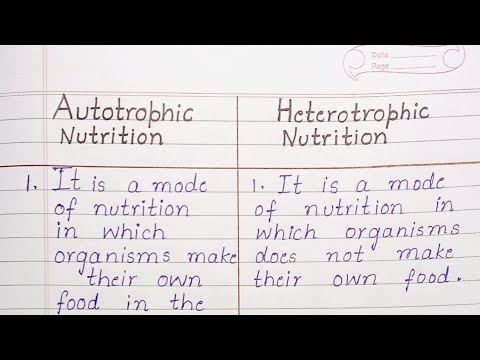 Date
Page
Autotrophic
Nutrition
Heterotrophic
Nutrition
1. It is a mode
of nutrition
in which
organisms make
their own
food in the
1. It is a mode
of nutrition in
which organisms
does not make
their own food.